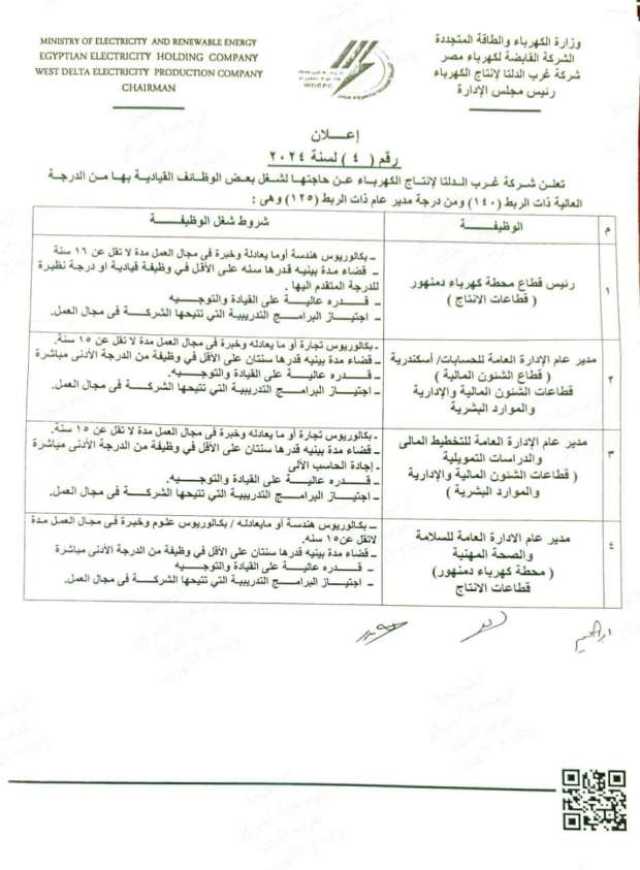 MINISTRY OF ELECTRICITY AND RENEWABLE ENERGY
EGYPTIAN ELECTRICITY HOLDING COMPANY
WEST DELTA ELECTRICITY PRODUCTION COMPANY
CHAIRMAN
وزارة الكهرباء والطاقة المتجددة
الشركة القابضة لكهرباء مصر
شركة غرب الدلتا لإنتاج الكهرباء
رئيس مجلس الإدارة
إعـــلان
رقم ( ٤ ) لسنة ٢٠٢٤
تعلن شركة غرب الدلتا لإنتاج الكهرباء عن حاجتها لشغل بعض الوظائف القيادية بها من الدرجة
العالية ذات الربط (١٤٠) ومن درجة مدير عام ذات الربط (١٢٥) وهى :
م
الوظيفـــــة
شروط شغل الوظيفـــة
١
رئيس قطاع محطة كهرباء دمنهور
( قطاعات الانتاج )
ـ بكالوريوس هندسة أوما يعادلة وخبرة في مجال العمل مدة لا تقل عن ١٦ سنة
ـ قضاء مدة بينيه قدرها سنه على الأقل في وظيفة قيادية او درجة نظيرة
للدرجة المتقدم اليها .
ـ قـــدره عاليـة على القيادة والتوجيـه
ـ اجتيـاز البرامـج التدريبية التي تتيحها الشركـة فى مجال العمل.
٢
مدير عام الإدارة العامة للحسابات/ أسكندرية
( قطاع الشئون المالية )
قطاعات الشئون المالية والإدارية
والموارد البشرية
ـ بكالوريوس تجارة أو ما يعادله وخبرة فى مجال العمل مدة لا تقل عن ١٥ سنة.
ـ قضاء مدة بينيه قدرها سنتان على الأقل في وظيفة من الدرجة الأدنى مباشرة
ـ قـــدره عاليـة على القيادة والتوجيـه.
ـ اجتيـاز البرامـج التدريبية التي تتيحها الشركـة فى مجال العمل.
٣
مدير عام الإدارة العامة للتخطيط المالى
والدراسات التمويلية
( قطاعات الشئون المالية والإدارية
والموارد البشرية )
ـ بكالوريوس تجارة أو ما يعادله وخبرة فى مجال العمل مدة لا تقل عن ١٥ سنة.
ـ قضاء مدة بينيه قدرها سنتان على الأقل في وظيفة من الدرجة الأدنى مباشرة
ـ إجادة الحاسب الألى
ـ قـــدره عاليـة على القيادة والتوجيـه.
ـ اجتيـاز البرامـج التدريبية التي تتيحها الشركـة فى مجال العمل.
٤
مدير عام الادارة العامة للسلامة
والصحة المهنية
( محطة كهرباء دمنهور)
قطاعات الانتاج
ـ بكالوريوس هندسة أو مايعادله / بكالوريوس علوم وخبرة فى مجال العمل مدة
لاتقل عن١٥ سنه.
ـ قضاء مدة بينيه قدرها سنتان على الأقل في وظيفة من الدرجة الأدنى مباشرة
ـ قـــدره عاليـة على القيادة والتوجيـه
ـ اجتيـاز البرامـج التدريبية التي تتيحها الشركـة فى مجال العمل.